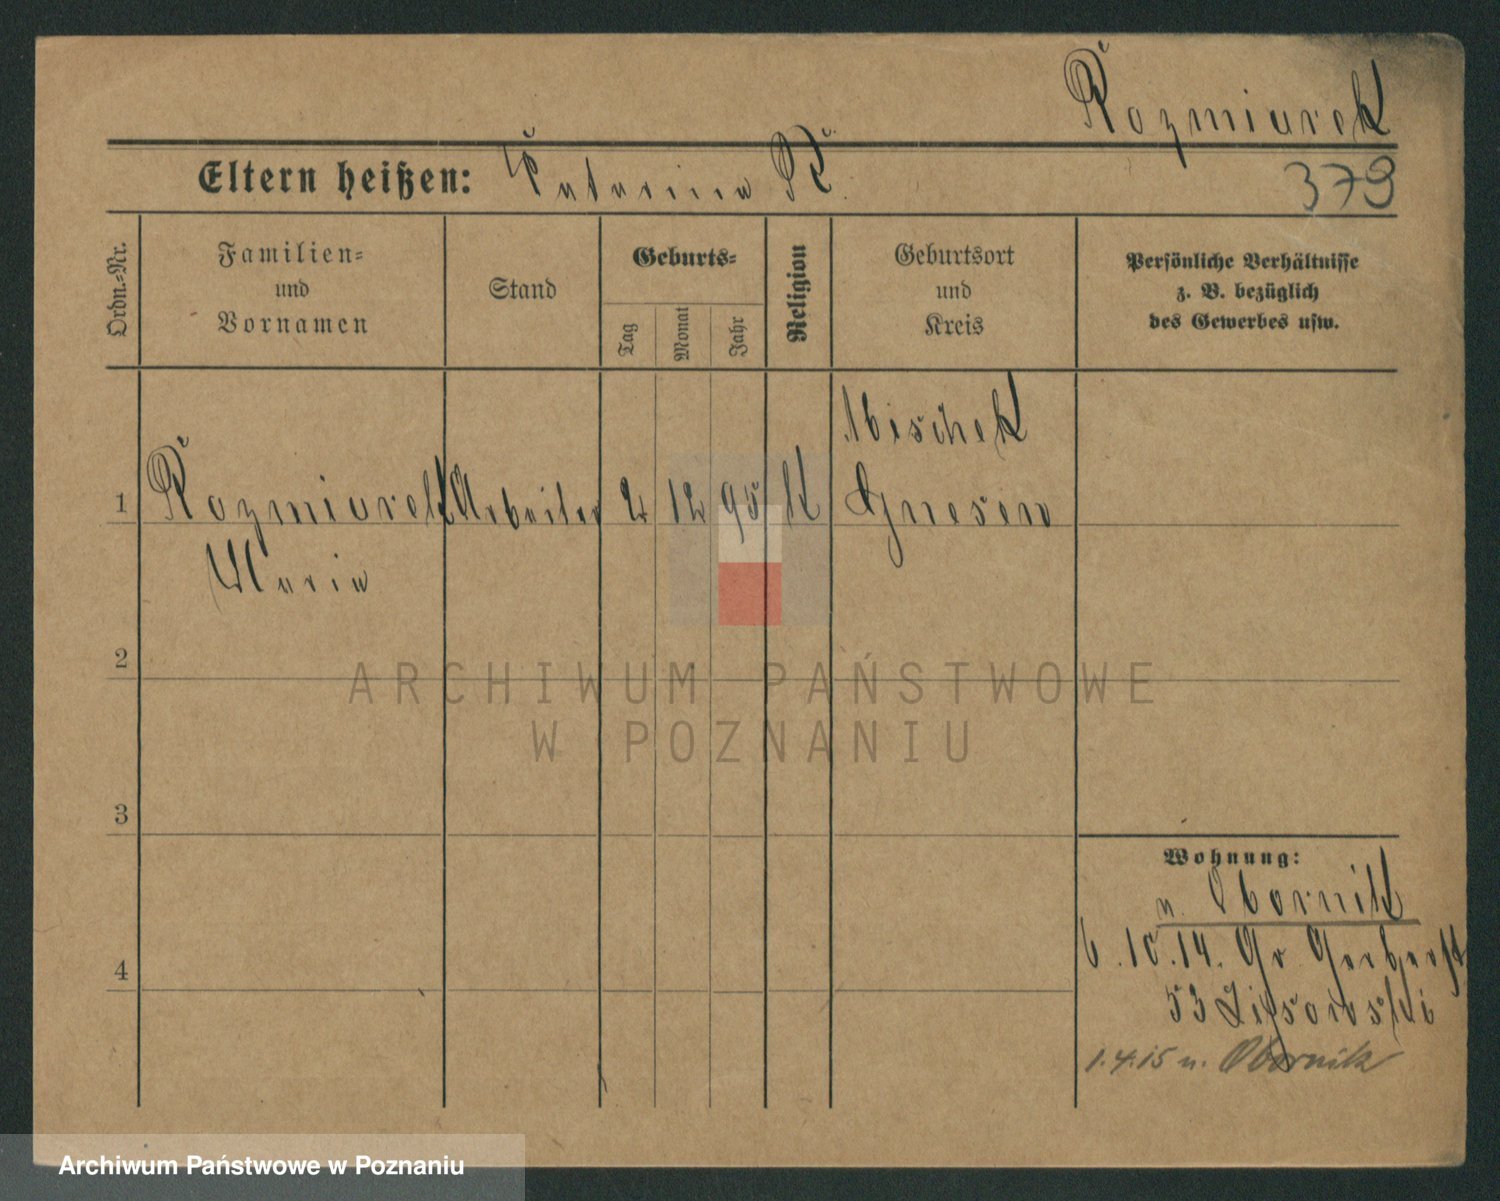 Rozmiarek
Eltern heißen: Katarina R.
379
Ordn.-Nr.
Familien-
und
Vornamen
Stand
Geburts-
Tag
Monat
Jahr
Religion
Geburtsort
und
Kreis
Persönliche Verhältnisse
z. B. bezüglich
des Gewerbes usw.
Mischek
1 Rozmiarek Arbeiter 2 12 95 K Gnesen
Maria
2
ARCHIWUM PAŃSTWOWE
W POZNANIU
3
Wohnung:
n. Obornik
4
6.10.14. Gr Gerberst
53 Lissowski
1.4.15 n. Obornik
Archiwum Państwowe w Poznaniu